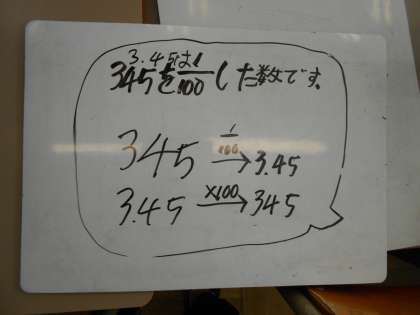 3.45は
345を1/100した数です。
345 1/100→ 3.45
3.45 ×100→ 345